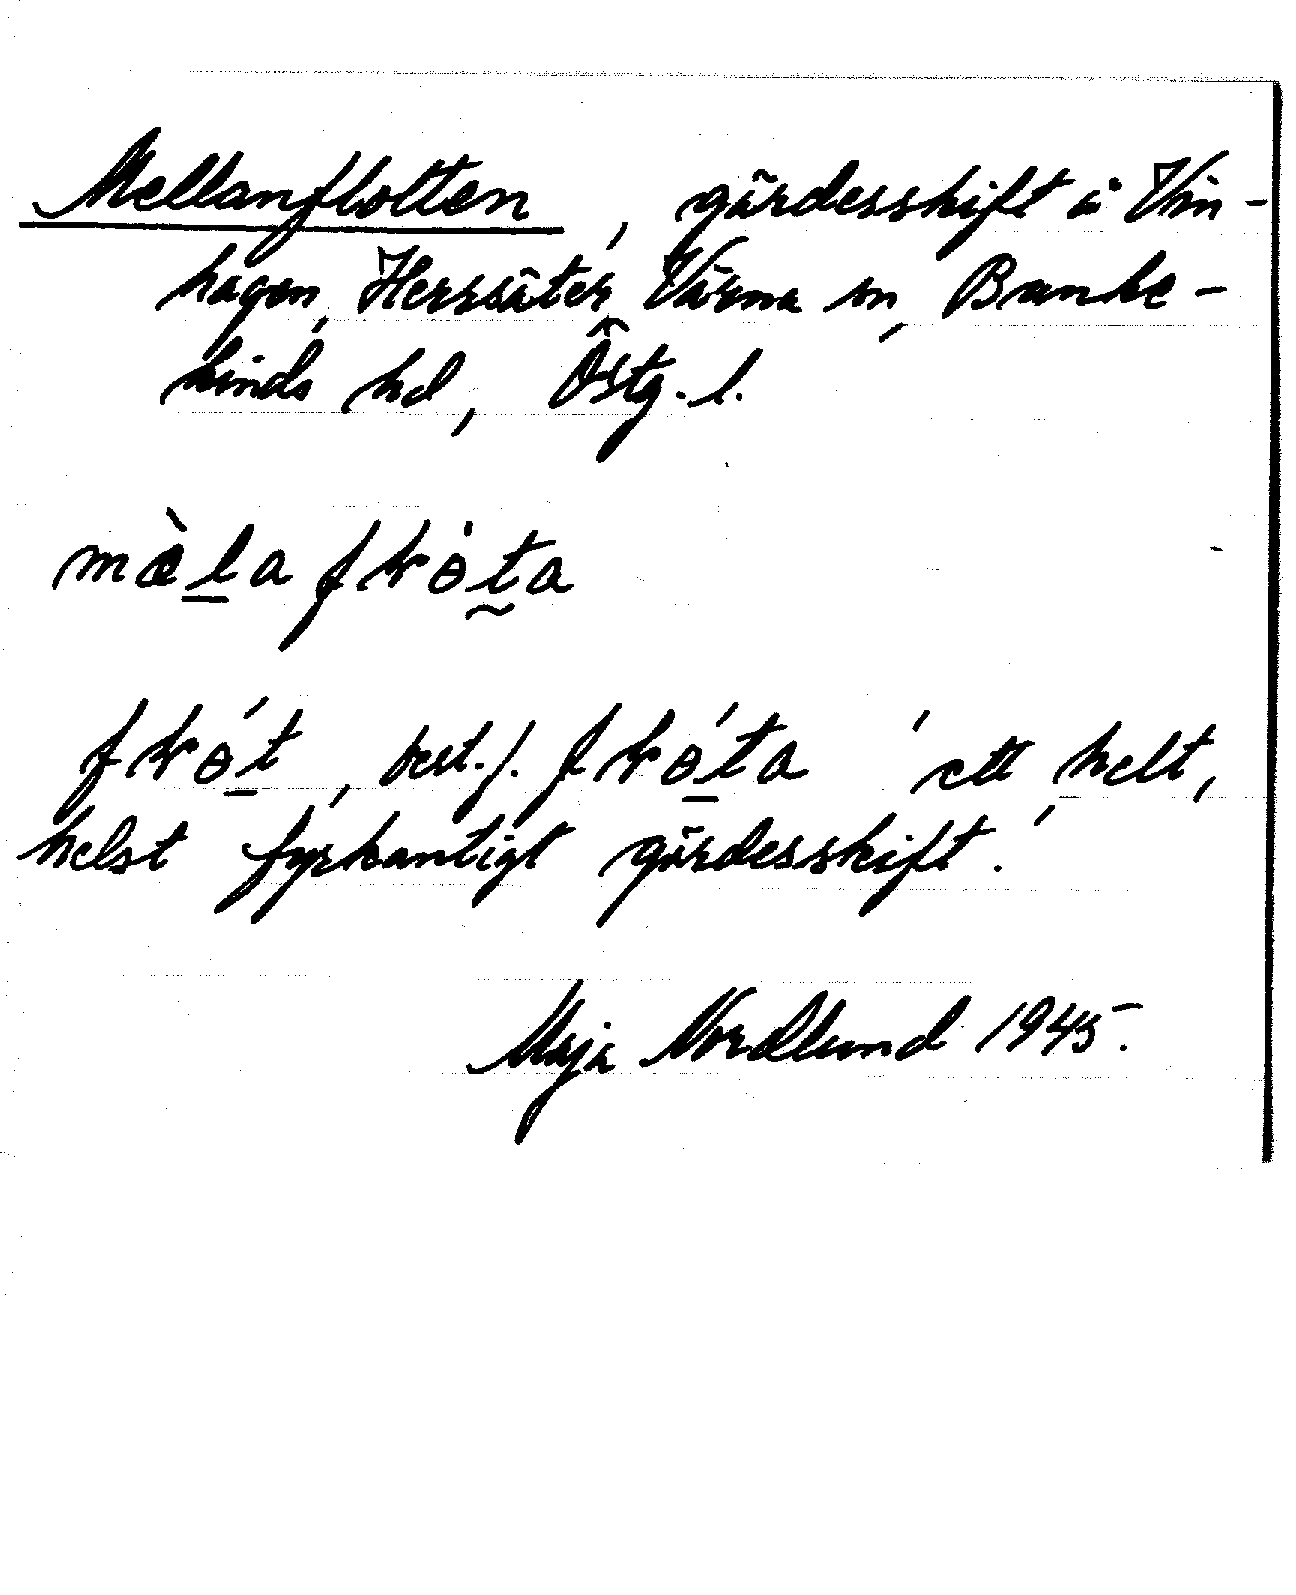 Mellanflotten, gärdesskift å Vin-
hagen, Herrsäter, Värna sn, Banke-
kinds hd, Östg. l.
mæ̀lafɬɵ̀ta
fɬɵ́t, best. f. fɬɵ́ta 'ett helt,
helst fyrkantigt gärdesskift'.
Maja Nordlund 1945.